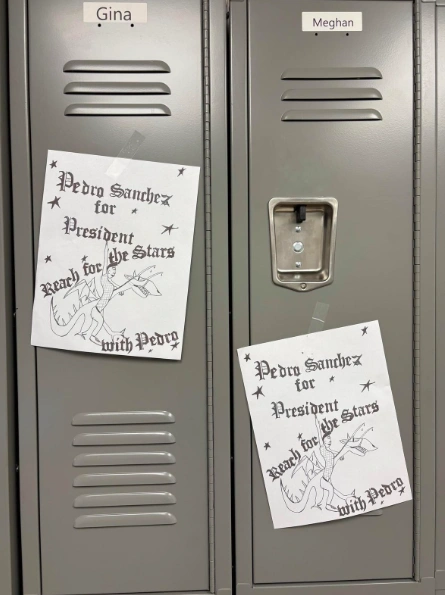 Gina
Pedro Sanchez
for
President
Reach for the Stars
with Pedro
Meghan
Pedro Sanchez
for
President
Reach for the Stars
with Pedro